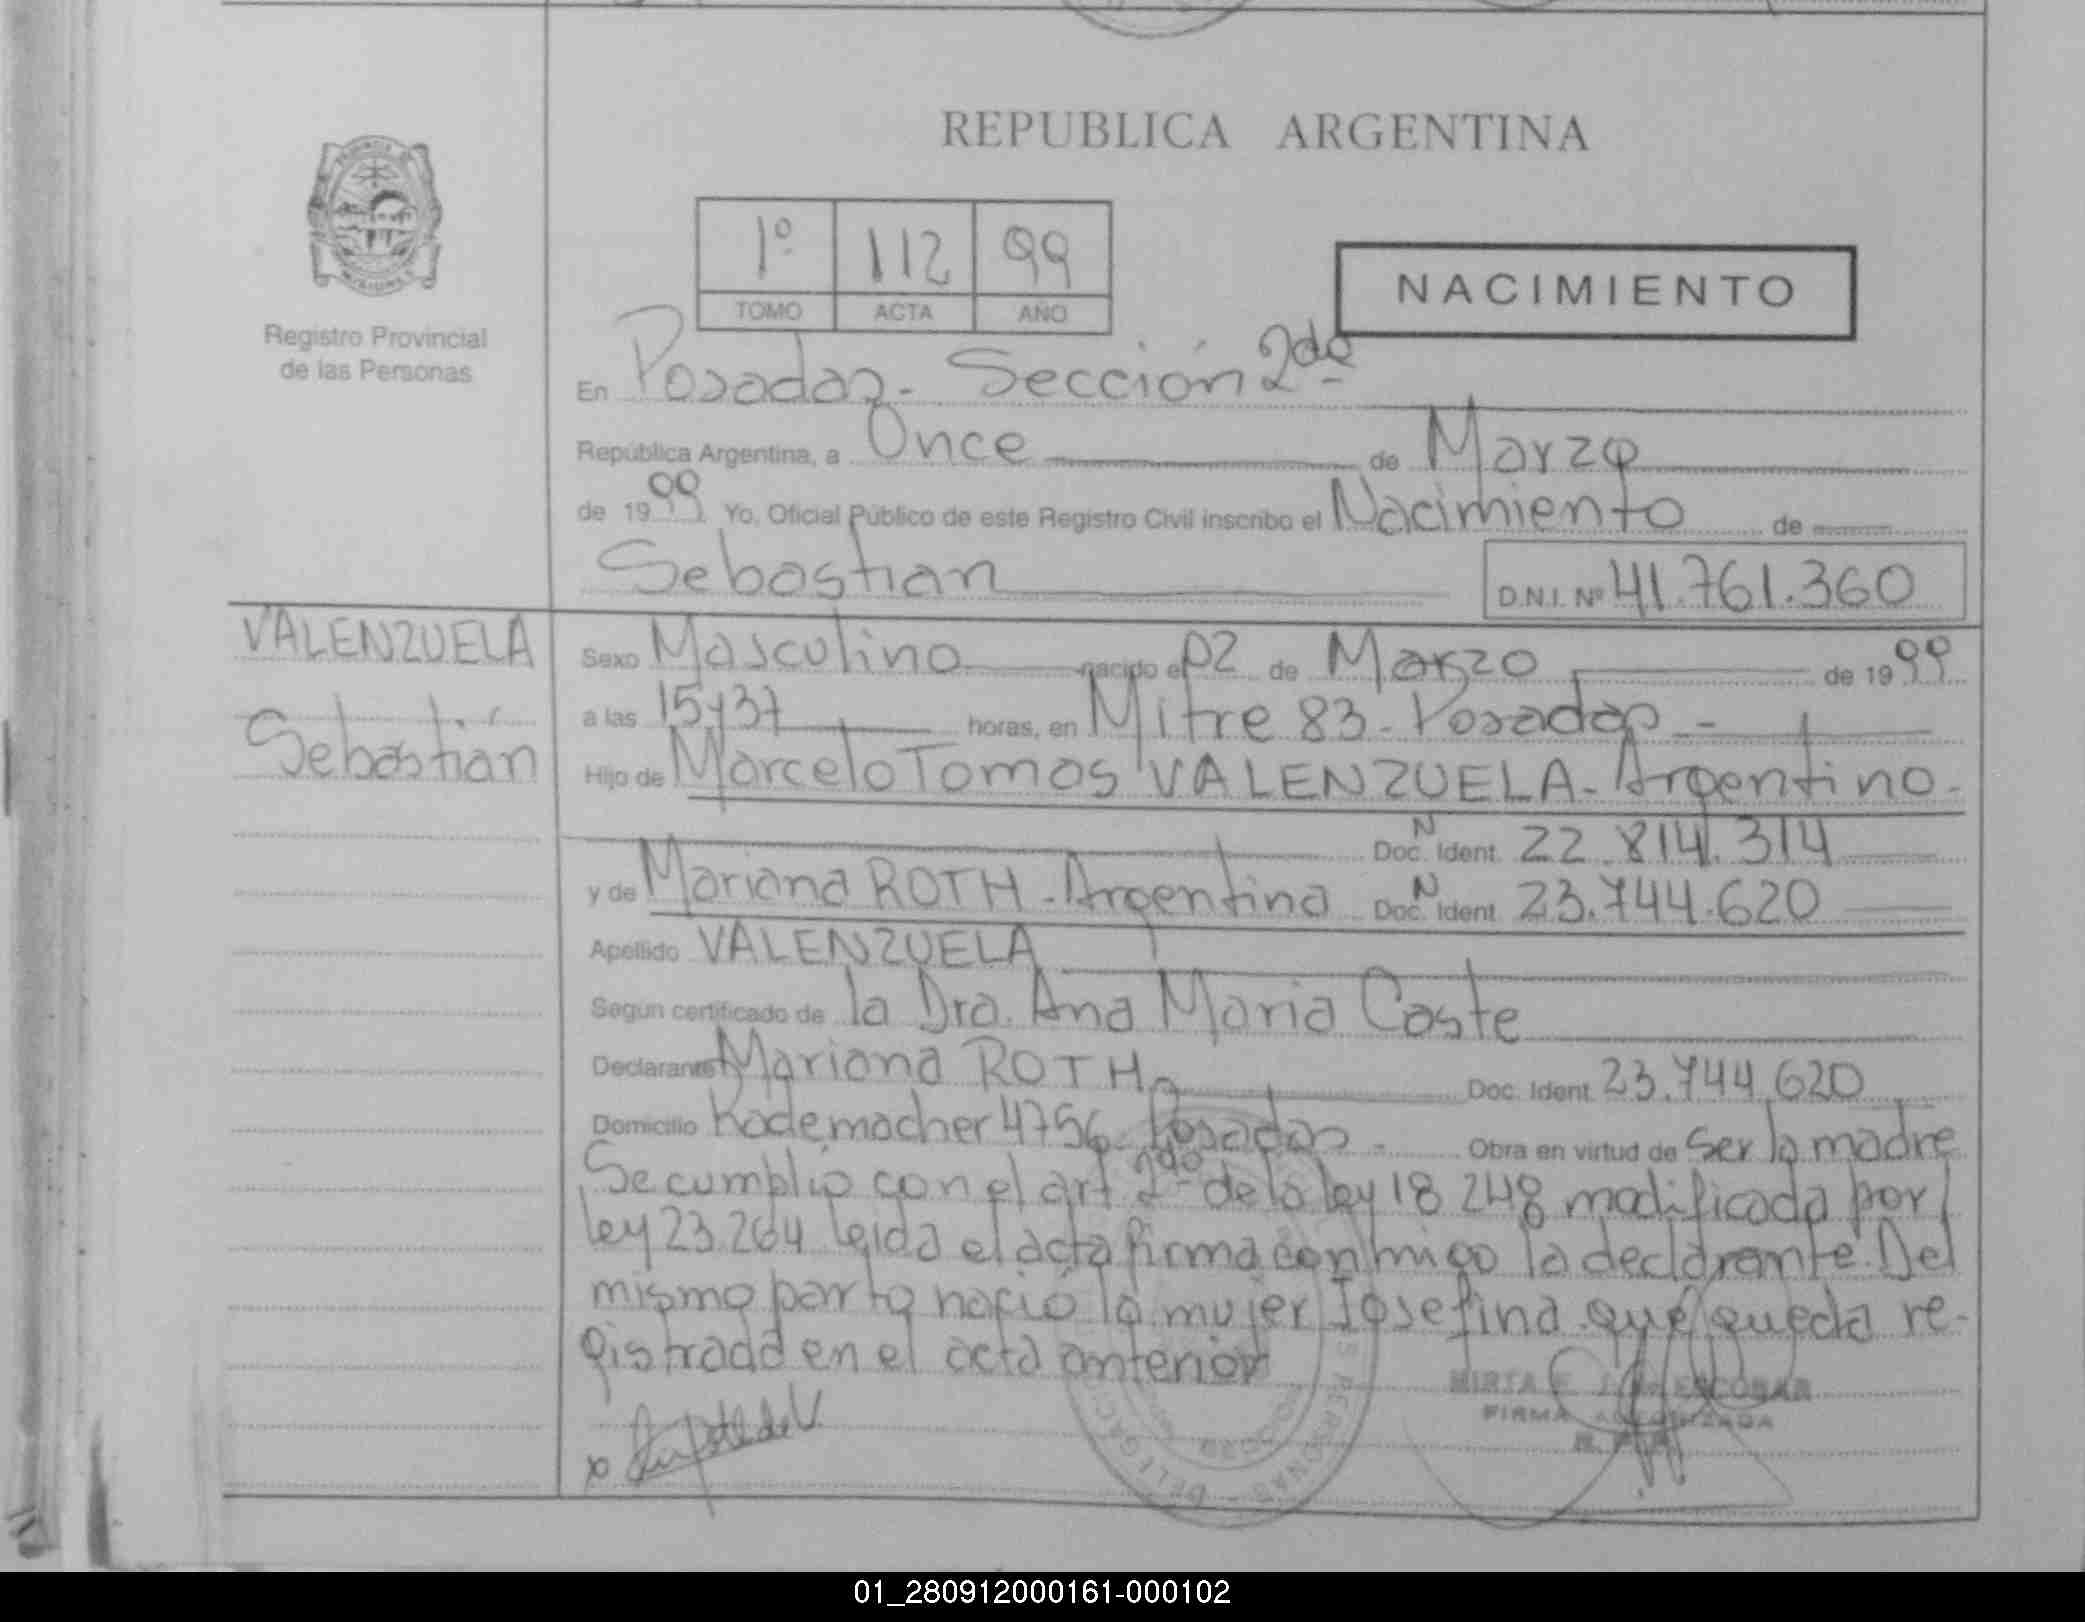 REPUBLICA ARGENTINA
1º 112 99
TOMO ACTA AÑO
NACIMIENTO
Registro Provincial
de las Personas
En Posadas - Sección 2da
República Argentina, a Once de Marzo
de 1999 Yo, Oficial Público de este Registro Civil inscribo el Nacimiento de
Sebastian D.N.I. Nº 41.761.360
VALENZUELA
Sebastián
Sexo Masculino nacido el 02 de Marzo de 1999
a las 15y37 horas, en Mitre 83 - Posadas -
Hijo de Marcelo Tomas VALENZUELA - Argentino -
Doc. N Ident. 22.814.314
y de Mariana ROTH - Argentina Doc. N Ident. 23.744.620
Apellido VALENZUELA
Según certificado de la Dra. Ana Maria Coste
Declarante Mariana ROTH Doc. Ident. 23.744.620
Domicilio Rademacher 4756 - Posadas - Obra en virtud de ser la madre
Se cumplio con el art 2do de la ley 18 248 modificada por
ley 23.264 leida el acta firma conmigo la declarante. Del
mismo parto nació la mujer Josefina que queda re-
gistrada en el acta anterior
MIRTA ESCOBAR
FIRMA AUTORIZADA
PERSONAS - DELEGAC
01_280912000161-000102